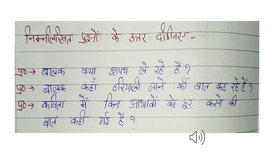 निम्नलिखित प्रश्नों के उत्तर दीजिए-
प्र० → बालक क्या शपथ ले रहे हैं?
प्र० → बालक कहाँ हरियाली लाने की बात कह रहे हैं?
प्र० → कविता में किन अभावों को दूर करने की
बात कही गई है?